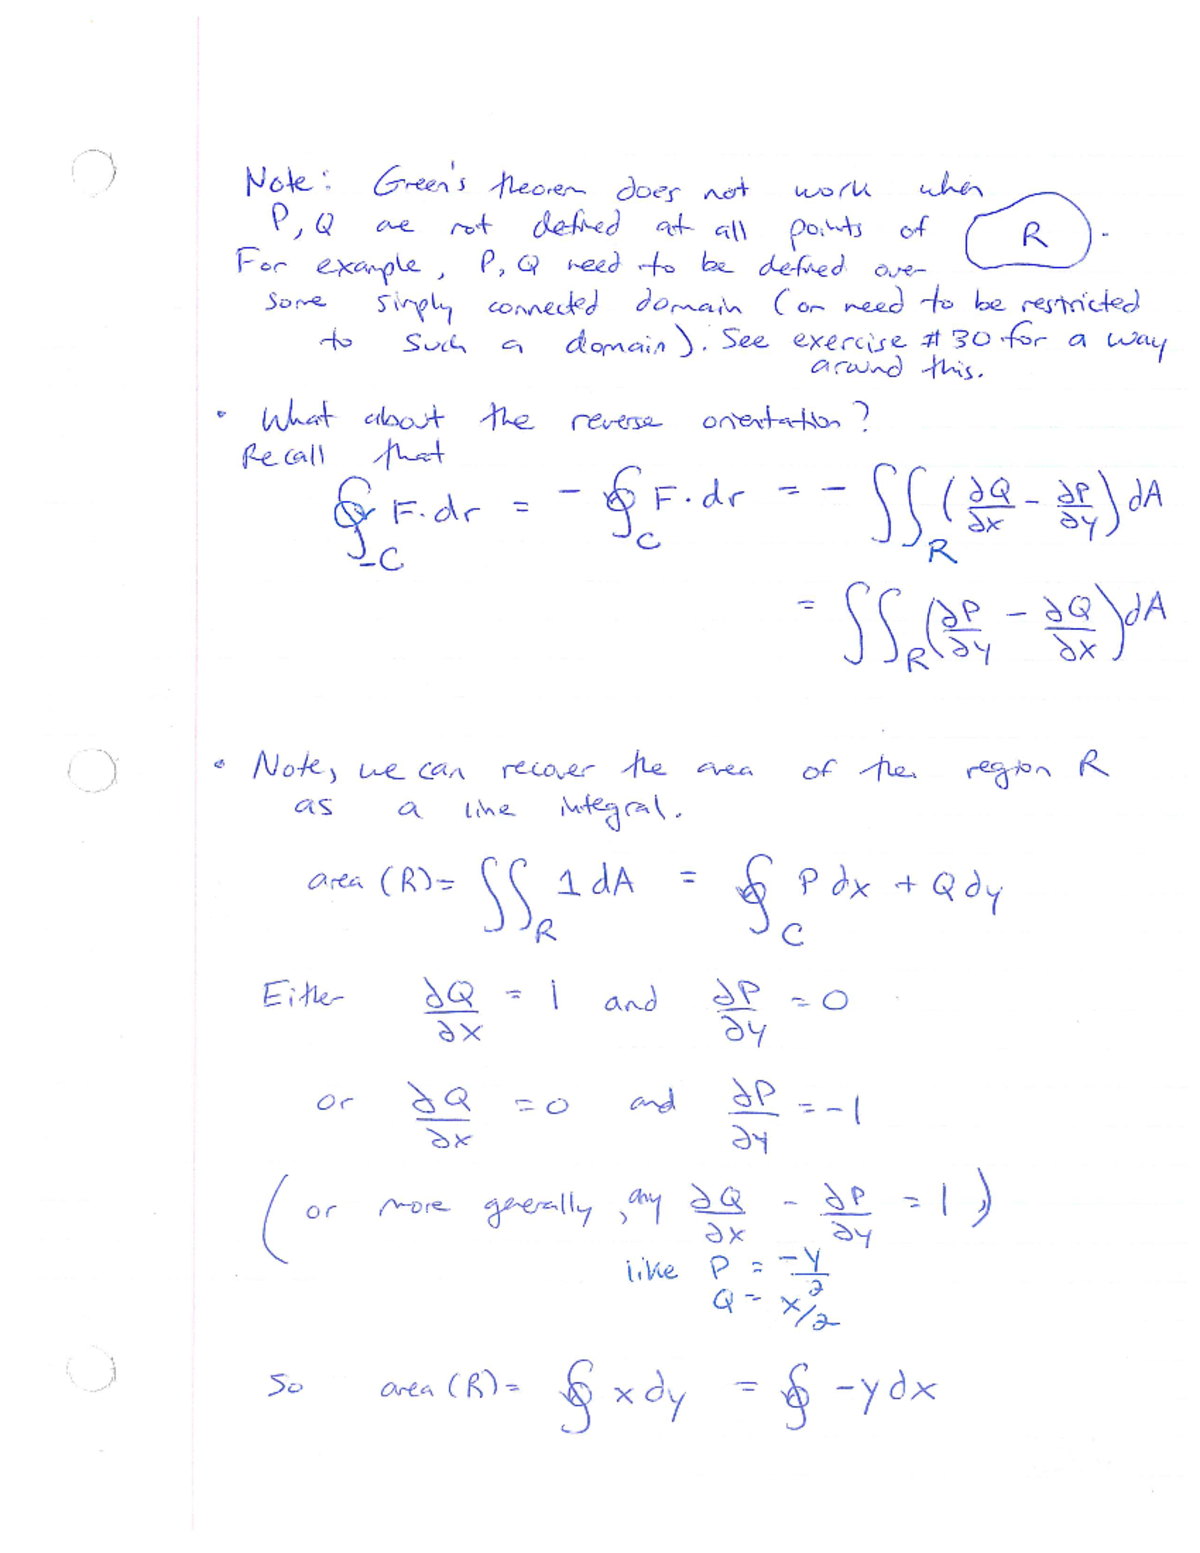 Note: Green's theorem does not work when
P, Q are not defined at all points of R.
For example, P, Q need to be defined over
some simply connected domain (or need to be restricted
to such a domain). See exercise #30 for a way
around this.
• What about the reverse orientation?
Recall that
∮_{-C} F·dr = -∮_C F·dr = -∬_R (∂Q/∂x - ∂P/∂y) dA
= ∬_R (∂P/∂y - ∂Q/∂x) dA
• Note, we can recover the area of the region R
as a line integral.
area (R) = ∬_R 1 dA = ∮_C P dx + Q dy
Either ∂Q/∂x = 1 and ∂P/∂y = 0
or ∂Q/∂x = 0 and ∂P/∂y = -1
(or more generally, any ∂Q/∂x - ∂P/∂y = 1,)
like P = -y/2
Q = x/2
So area (R) = ∮ x dy = ∮ -y dx